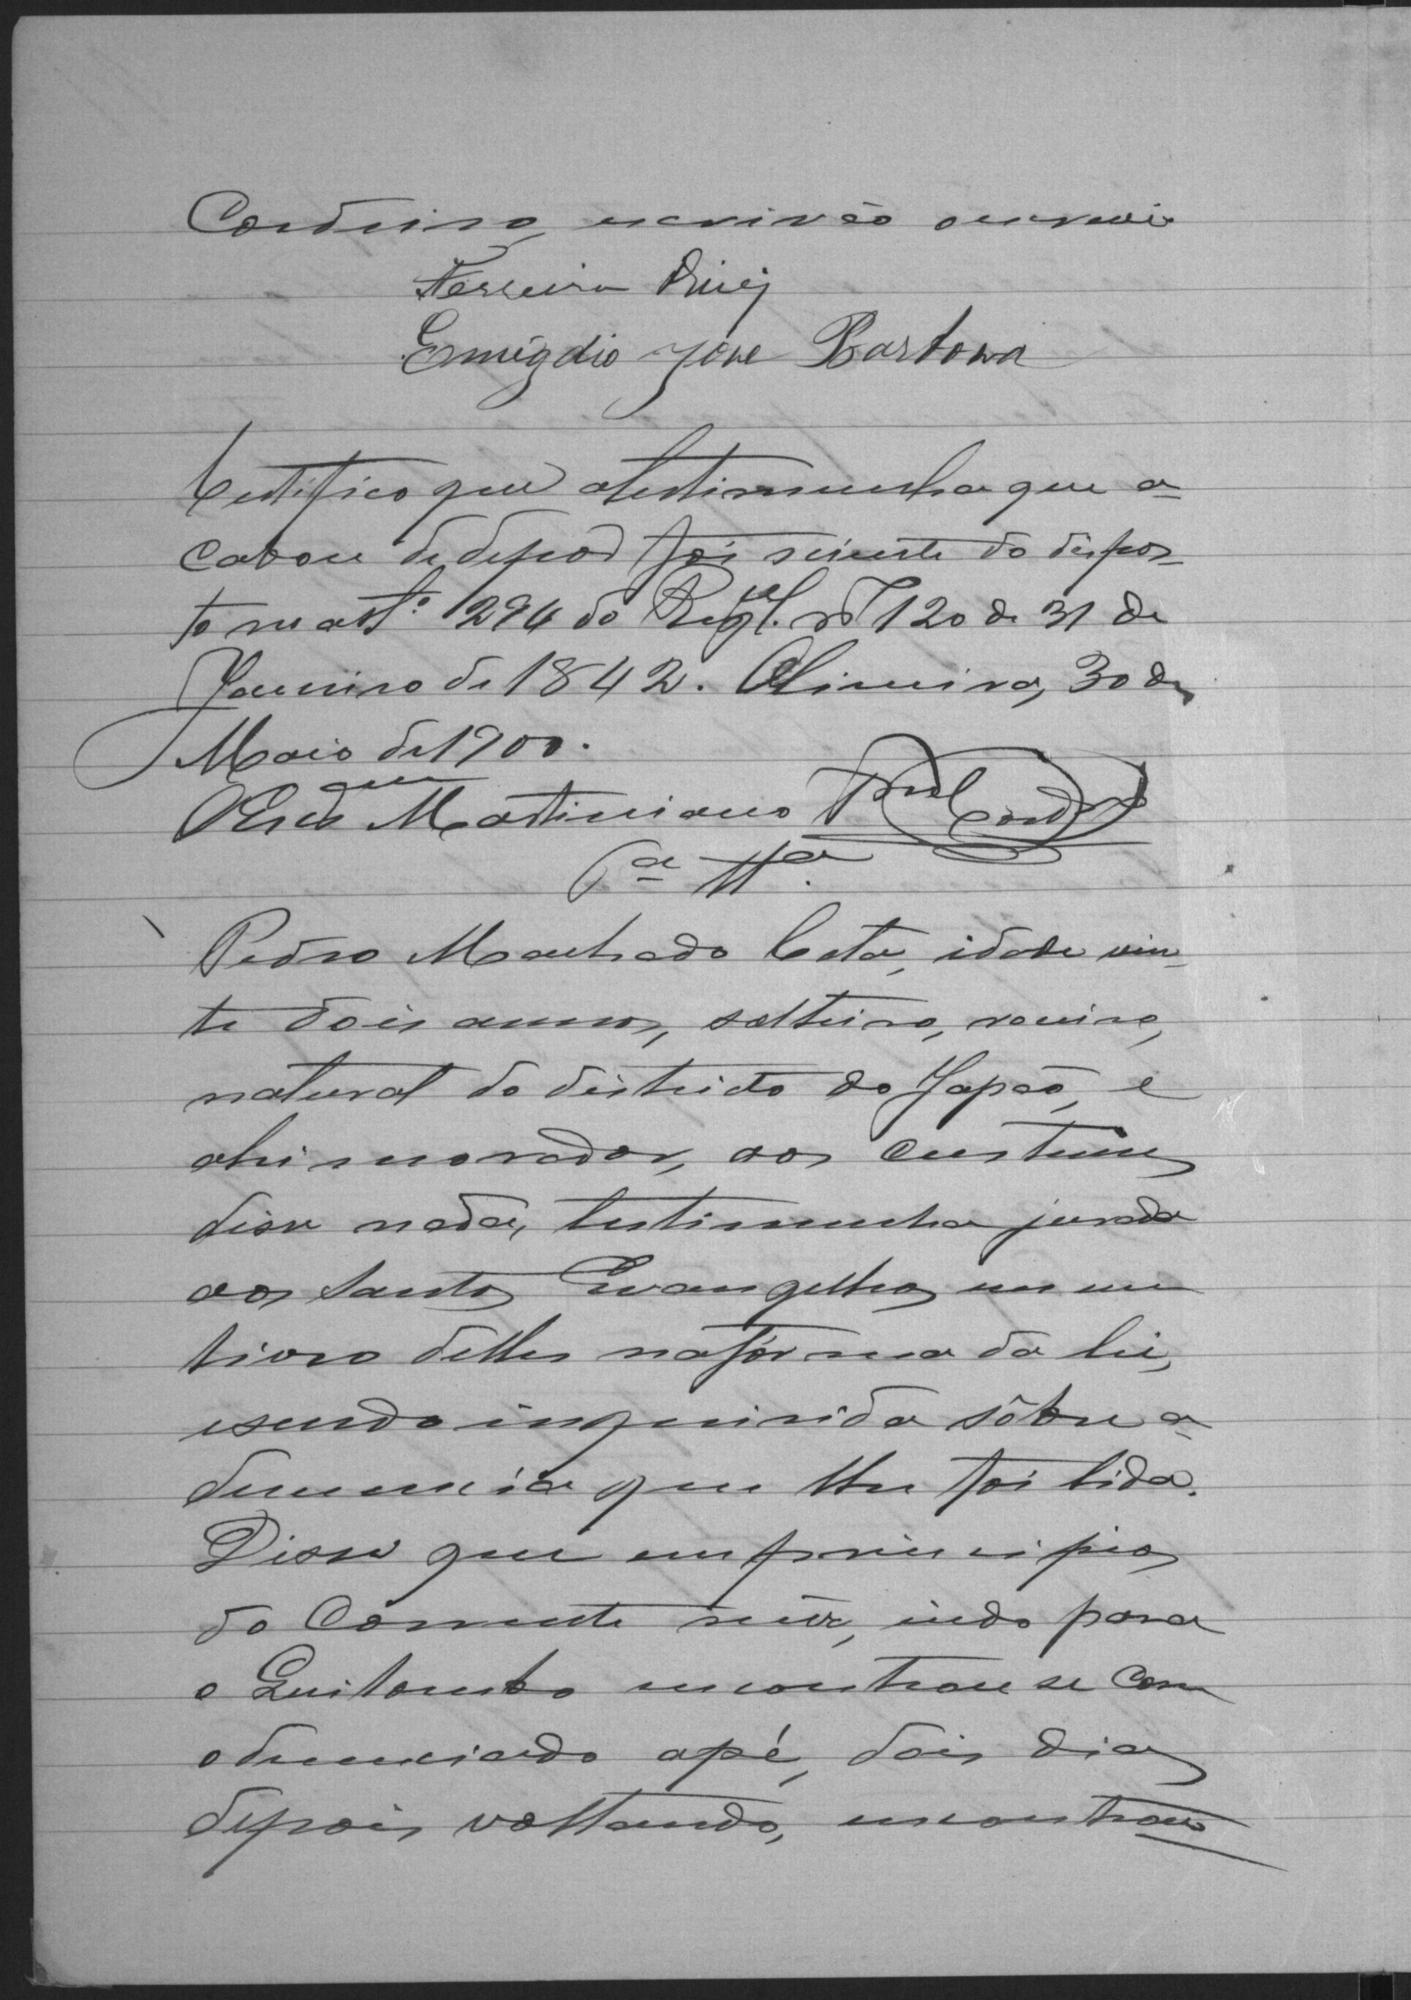 Cordeiro, escrivão o escrevi
Ferreira Diniz
Emigdio Jose Barbosa
Certifico que a testimunha que a-
cabou de depor foi sciente do dispos-
to no art.º 294 do Regul. nº 120 de 31 de
Janeiro de 1842. Oliveira, 30 de
Maio de 1900.
O Escr.am Martiniano Cord.ro
6ª Tª.
Pedro Machado Cota, idade vin-
te dois annos, solteiro,
natural do districto do Japão, e
ahi morador, aos custumes
disse nada, testimunha jurada
aos Santos Evangelhos em um
livro delles na fórma da lei,
e sendo inquirida sôbre a-
denuncia que lhe foi lida.
Disse que em principios
do Corrente mêz, indo para
o Quilombo encontrou se com
o denunciado a pé, dois dias
depois voltando, encontrou